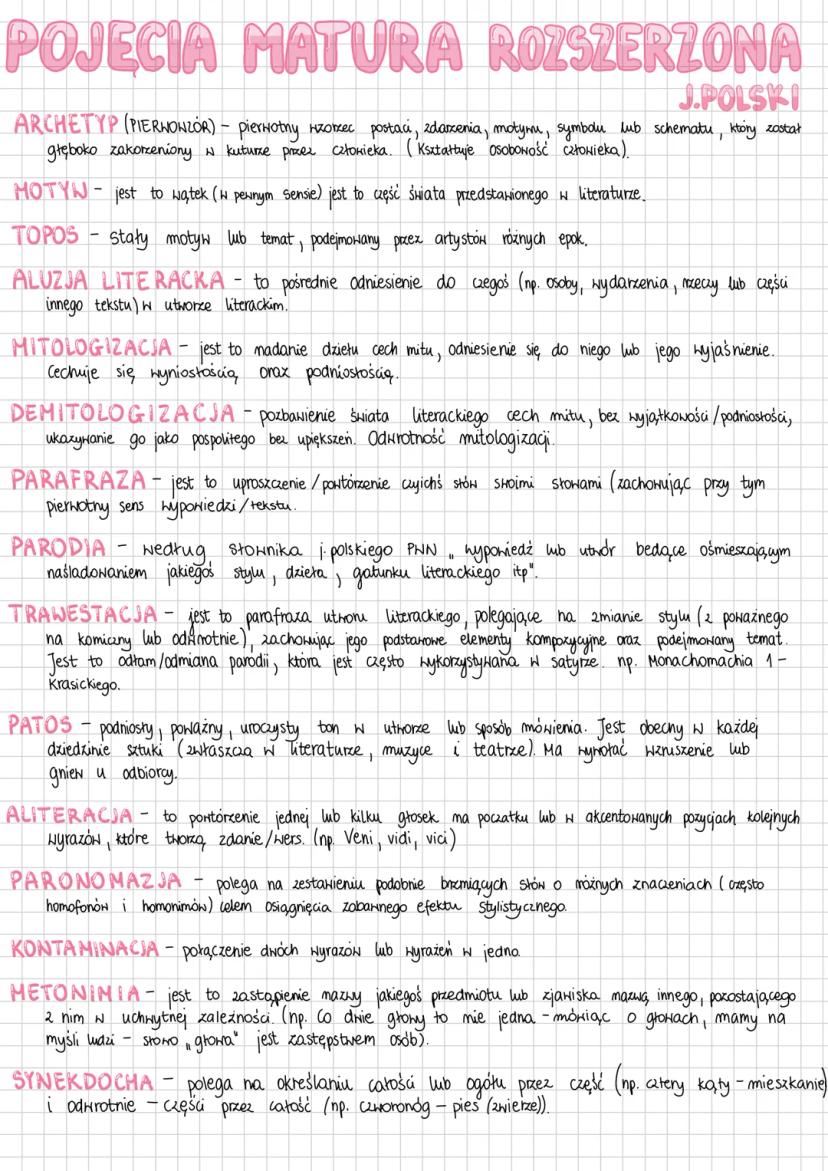 POJĘCIA MATURA ROZSZERZONA
J.POLSKI
ARCHETYP (PIERWOWZÓR) – pierwotny wzorzec postaci, zdarzenia, motywu, symbolu lub schematu, który został
głęboko zakorzeniony w kuturze przez człowieka. (Kształtuje osobowość człowieka).
MOTYW – jest to wątek (w pewnym sensie) jest to część świata przedstawionego w literaturze.
TOPOS – stały motyw lub temat, podejmowany przez artystów różnych epok.
ALUZJA LITERACKA – to pośrednie odniesienie do czegoś (np. osoby, wydarzenia, rzeczy lub części
innego tekstu) w utworze literackim.
MITOLOGIZACJA – jest to nadanie dziełu cech mitu, odniesienie się do niego lub jego wyjaśnienie.
Cechuje się wyniosłością oraz podniosłością.
DEMITOLOGIZACJA – pozbawienie świata literackiego cech mitu, bez wyjątkowości/podniosłości,
ukazywanie go jako pospolitego bez upiększeń. Odwrotność mitologizacji.
PARAFRAZA – jest to uproszczenie/powtórzenie czyichś słów swoimi słowami (zachowując przy tym
pierwotny sens wypowiedzi/tekstu.
PARODIA – według słownika j.polskiego PWN „wypowiedź lub utwór bedące ośmieszającym
naśladowaniem jakiegoś stylu, dzieła, gatunku literackiego itp".
TRAWESTACJA – jest to parafraza utworu literackiego, polegające na zmianie stylu (z poważnego
na komiczny lub odwrotnie), zachowując jego podstawowe elementy kompozycyjne oraz podejmowany temat.
Jest to odłam/odmiana parodii, która jest często wykorzystywana w satyrze. np. Monachomachia I –
Krasickiego.
PATOS – podniosły, poważny, uroczysty ton w utworze lub sposób mówienia. Jest obecny w każdej
dziedzinie sztuki (zwłaszcza w literaturze, muzyce i teatrze). Ma wywołać wzruszenie lub
gniew u odbiorcy.
ALITERACJA – to powtórzenie jednej lub kilku głosek na początku lub w akcentowanych pozycjach kolejnych
wyrazów, które tworzą zdanie/wers. (np. Veni, vidi, vici)
PARONOMAZJA – polega na zestawieniu podobnie brzmiących słów o różnych znaczeniach (często
homofonów i homonimów) celem osiągnięcia zabawnego efektu stylistycznego.
KONTAMINACJA – połączenie dwóch wyrazów lub wyrażeń w jedno.
METONIMIA – jest to zastąpienie nazwy jakiegoś przedmiotu lub zjawiska nazwą innego, pozostającego
z nim w uchwytnej zależności. (np. Co dwie głowy to nie jedna – mówiąc o głowach, mamy na
myśli ludzi – słowo „głowa" jest zastępstwem osób).
SYNEKDOCHA – polega na określaniu całości lub ogółu przez część (np. cztery kąty – mieszkanie)
i odwrotnie – części przez całość (np. czworonóg – pies (zwierze)).